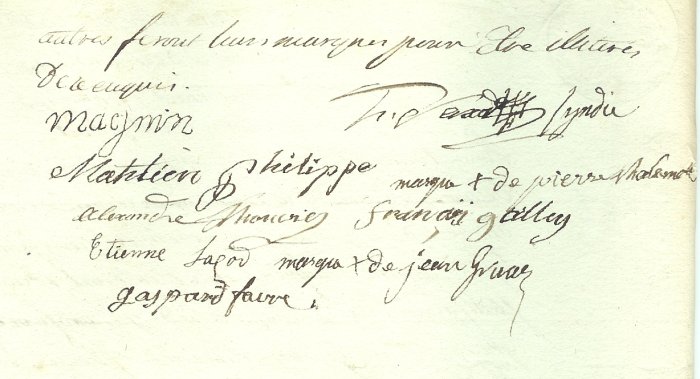 autres feront leurs marques pour Etre illiteres
De ce enquis.
magnin
Syndic
Mathieu philippe
marque + de pierre
alexandre françois gilles
Etienne marque + de jean
gaspard favre .